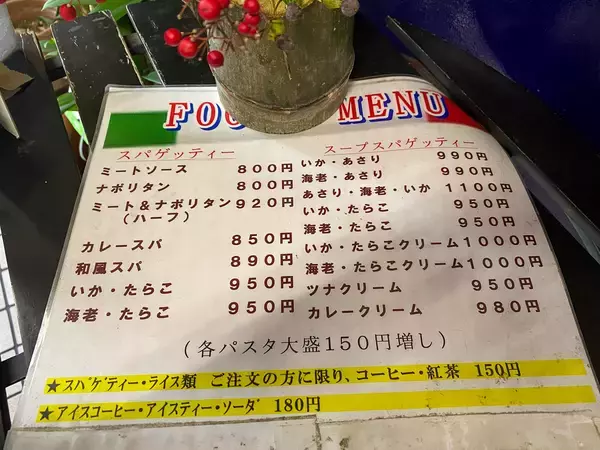 FOO MENU
スパゲッティー
ミートソース 800円
ナポリタン 800円
ミート＆ナポリタン 920円
（ハーフ）
カレースパ 850円
和風スパ 890円
いか・たらこ 950円
海老・たらこ 950円
スープスパゲッティー
いか・あさり 990円
海老・あさり 990円
あさり・海老・いか 1100円
いか・たらこ 950円
海老・たらこ 950円
いか・たらこクリーム 1000円
海老・たらこクリーム 1000円
ツナクリーム 950円
カレークリーム 980円
（各パスタ大盛150円増し）
★スパゲティー・ライス類 ご注文の方に限り、コーヒー・紅茶 150円
★アイスコーヒー・アイスティー・ソーダ 180円